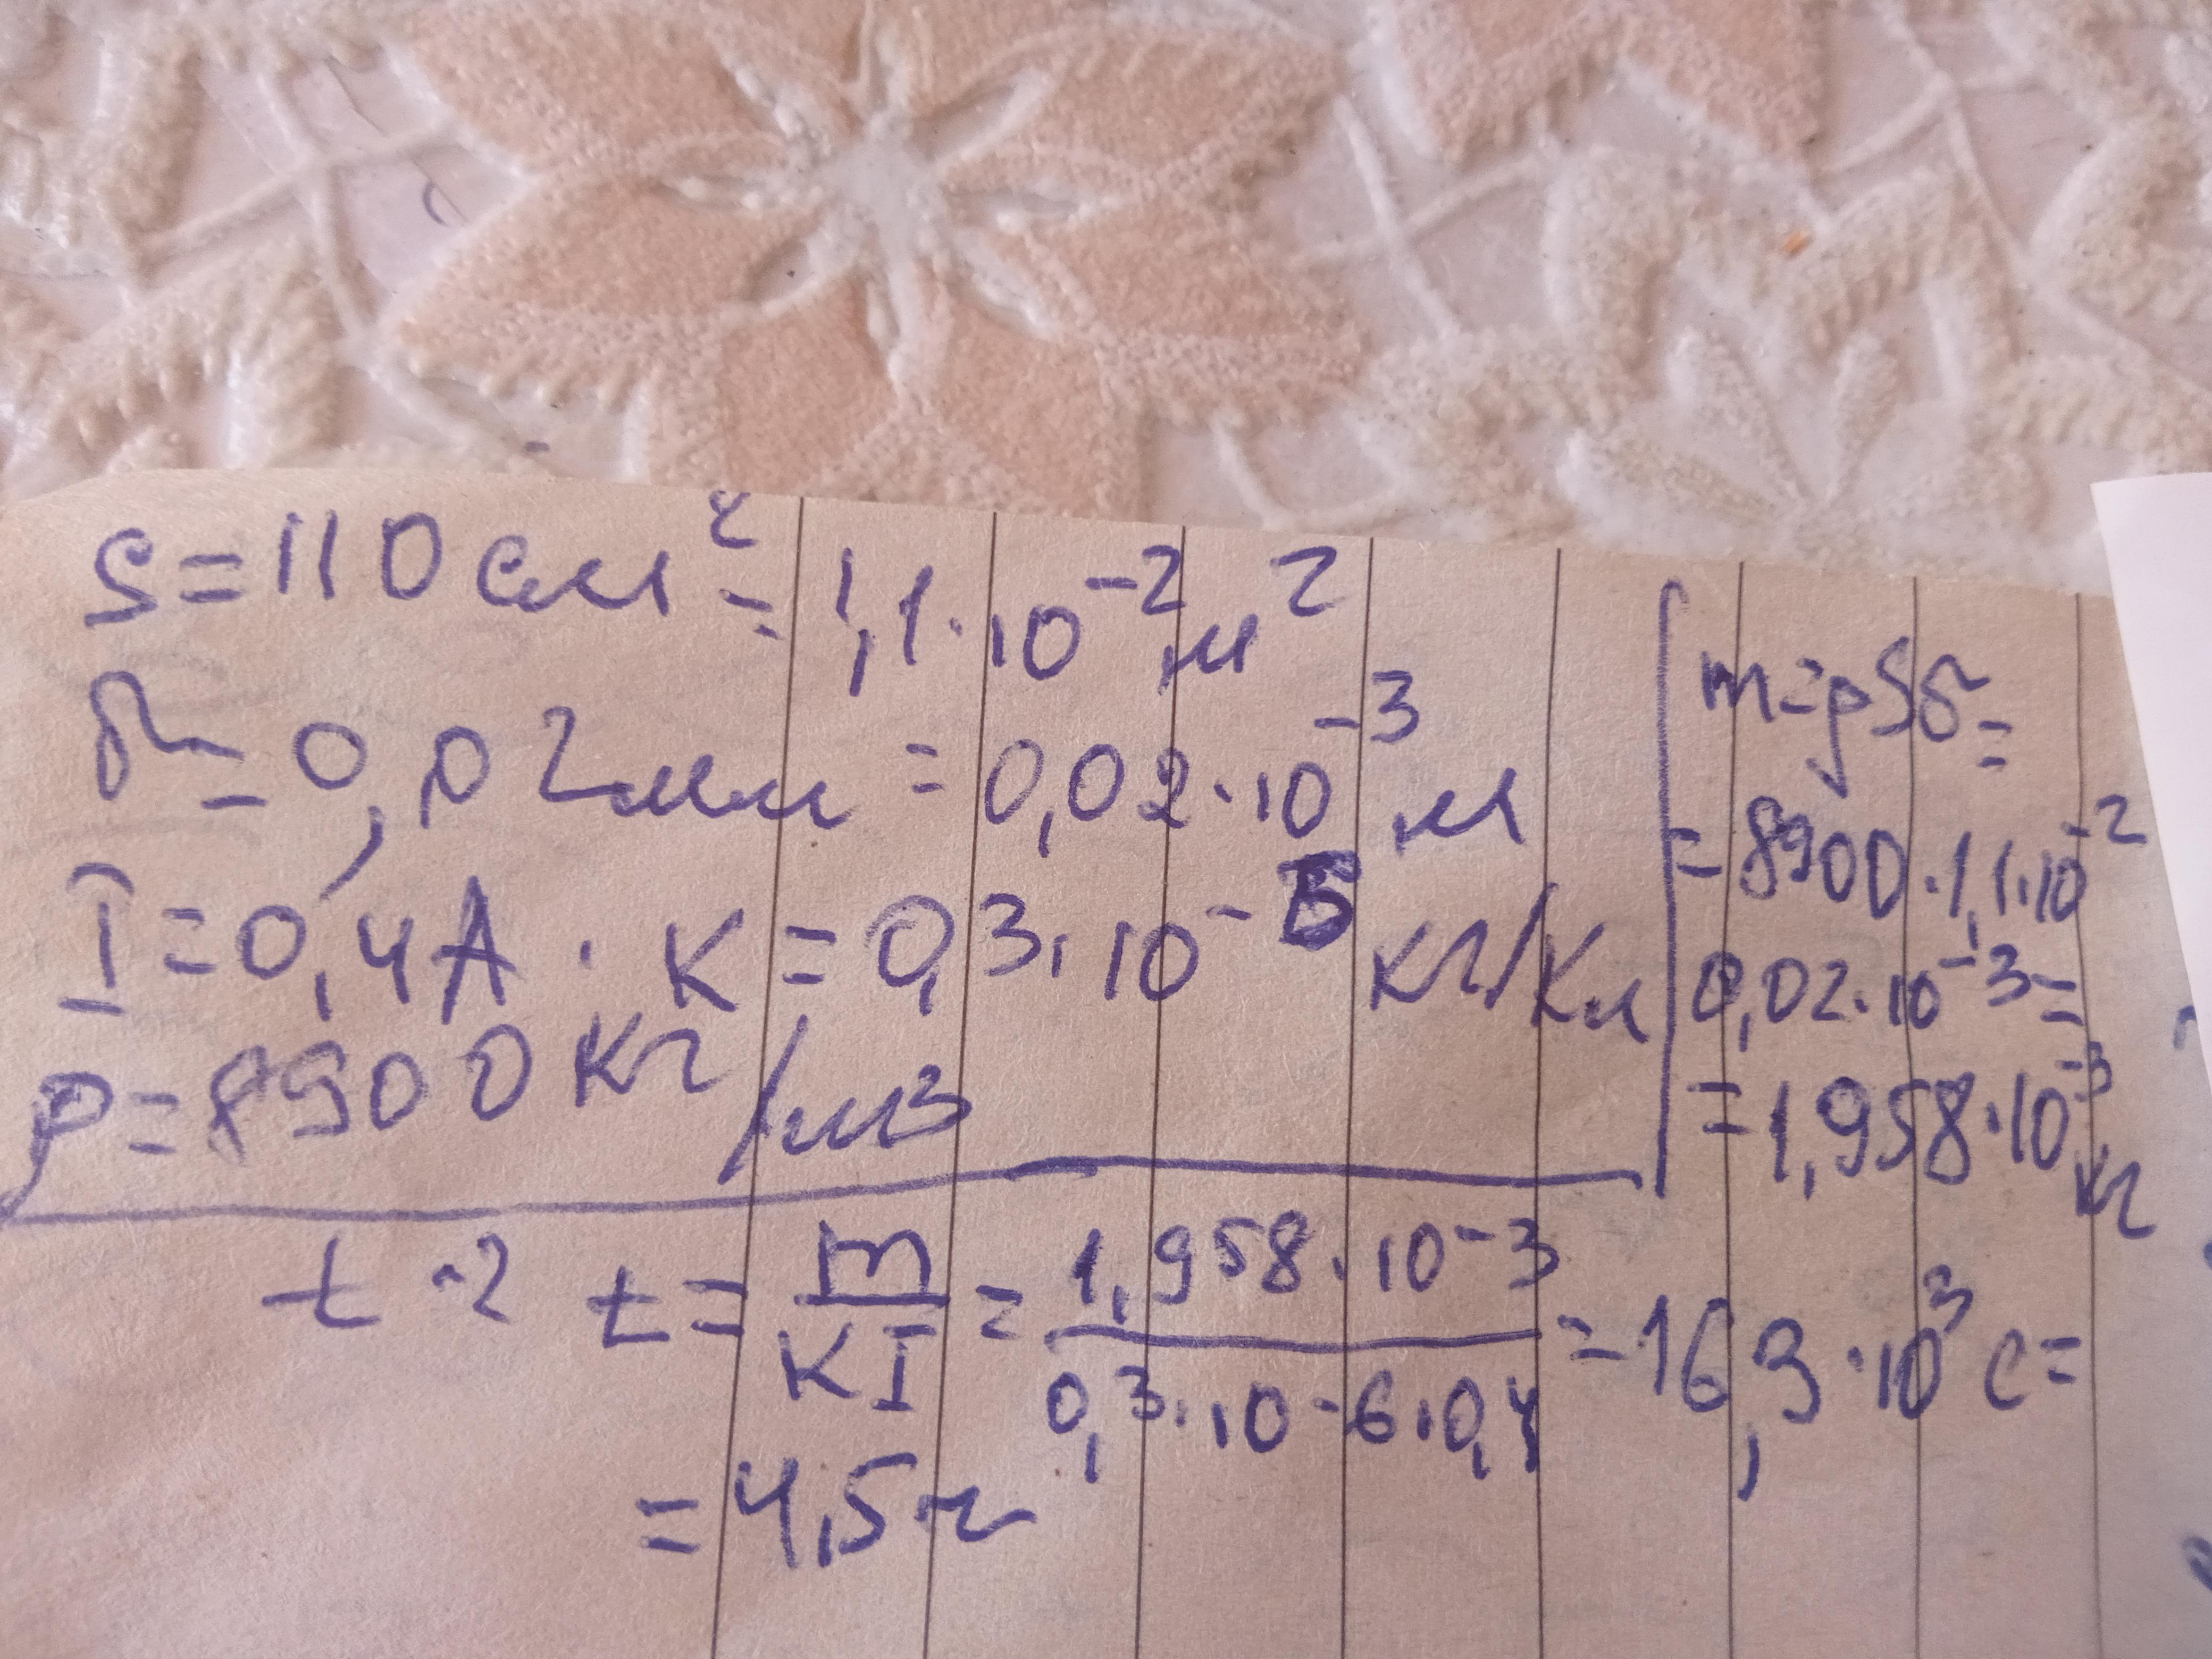 S=110 см²=1,1·10⁻² м²
δ=0,02мм=0,02·10⁻³ м
I=0,4А. К=0,3·10⁻⁶ кг/Кл
ρ=8900 кг/м3
m=ρSδ=
=8900·1,1·10⁻²
0,02·10⁻³=
=1,958·10⁻³ кг
t-? t=m/КI=1,958·10⁻³/0,3·10⁻⁶·0,4=16,3·10³ с=
=4,5 ч